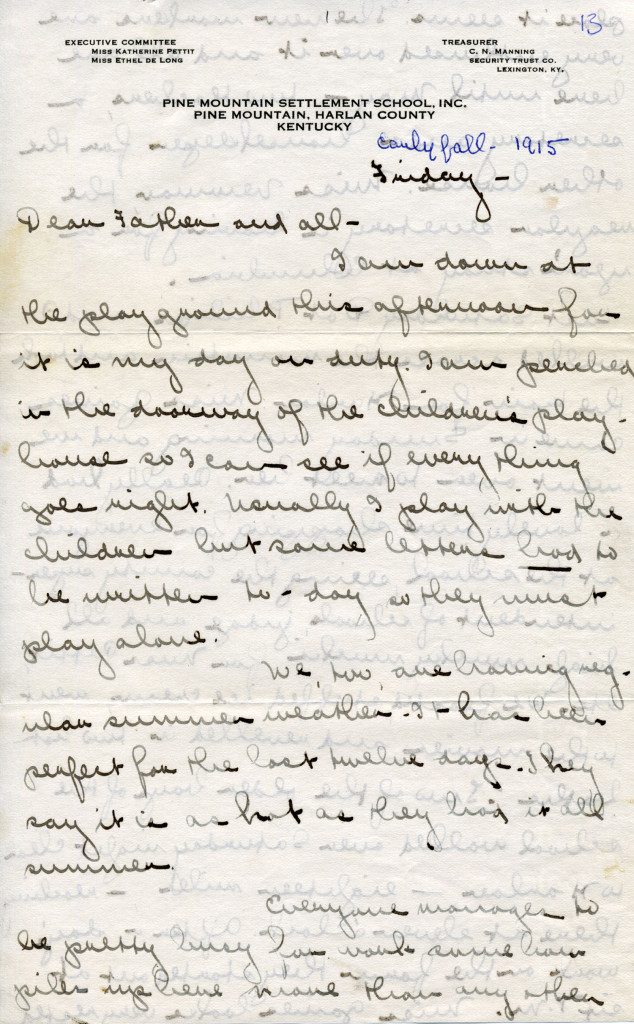 13
EXECUTIVE COMMITTEE
MISS KATHERINE PETTIT
MISS ETHEL DE LONG
TREASURER
C. N. MANNING
SECURITY TRUST CO.
LEXINGTON, KY.
PINE MOUNTAIN SETTLEMENT SCHOOL, INC.
PINE MOUNTAIN, HARLAN COUNTY
KENTUCKY
early fall - 1915
Friday -
Dear Father and all -
I am down at
the play ground this afternoon for
it is my day on duty. I am perched
in the doorway of the children's play-
house so I can see if every thing
goes right. Usually I play with the
children but some letters had to
be written to-day so they must
play alone.
We, too, are having reg-
ular summer weather. It has been
perfect for the last twelve days. They
say it is as hot as they had it all
summer.
Everyone manages to
be pretty busy for work somehow
piles up here more than any other